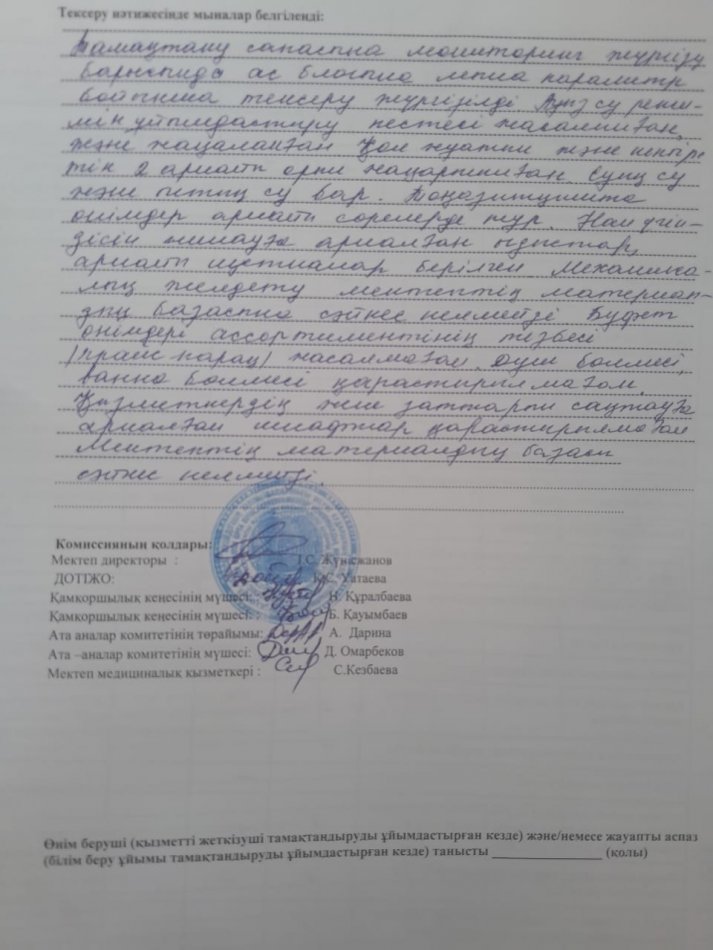 Тексеру нәтижесінде мыналар белгіленді:
Тамақтану сапасына мониторинг жүргізу
барысында ас блогына параметр
бойынша тексеру жүргізілді Тұз су режи-
мін ұйымдастыру кестесі жасалынған,
және жаңаланған Қол жуатын және кептіре-
тін 2 орны Суық су
және ыстық су бар. Тоңазытқышта
өнімдер арнайы сөрелерде тұр. Нан үгін-
дісін жинауға арналған ыдыстар,
арнайы берілген Механика-
лық желдету мектептің материал-
дық базасына сәйкес келмейді Буфет
өнімдері ассортиментінің тізбесі
/прайс парақ/ жасалмаған Душ бөлмесі,
ванна бөлмесі қарастырылмаған.
Қызметкердің жеке заттарын сақтауға
арналған шкафтар қарастырылмаған
Мектептің материалдық базасы
сәйкес келмейді.
Комиссияның қолдары:
Мектеп директоры : Жүнісжанов
ДОТІЖО: К.С. Уатаева
Қамқоршылық кеңесінің мүшесі: Н. Құралбаева
Қамқоршылық кеңесінің мүшесі: Б. Қауымбаев
Ата аналар комитетінің төрайымы: А. Дарина
Ата –аналар комитетінің мүшесі: Д. Омарбеков
Мектеп медициналық қызметкері : С.Кезбаева
Өнім беруші (қызметті жеткізуші тамақтандыруды ұйымдастырған кезде) және/немесе жауапты аспаз
(білім беру ұйымы тамақтандыруды ұйымдастырған кезде) танысты ________________ (қолы)